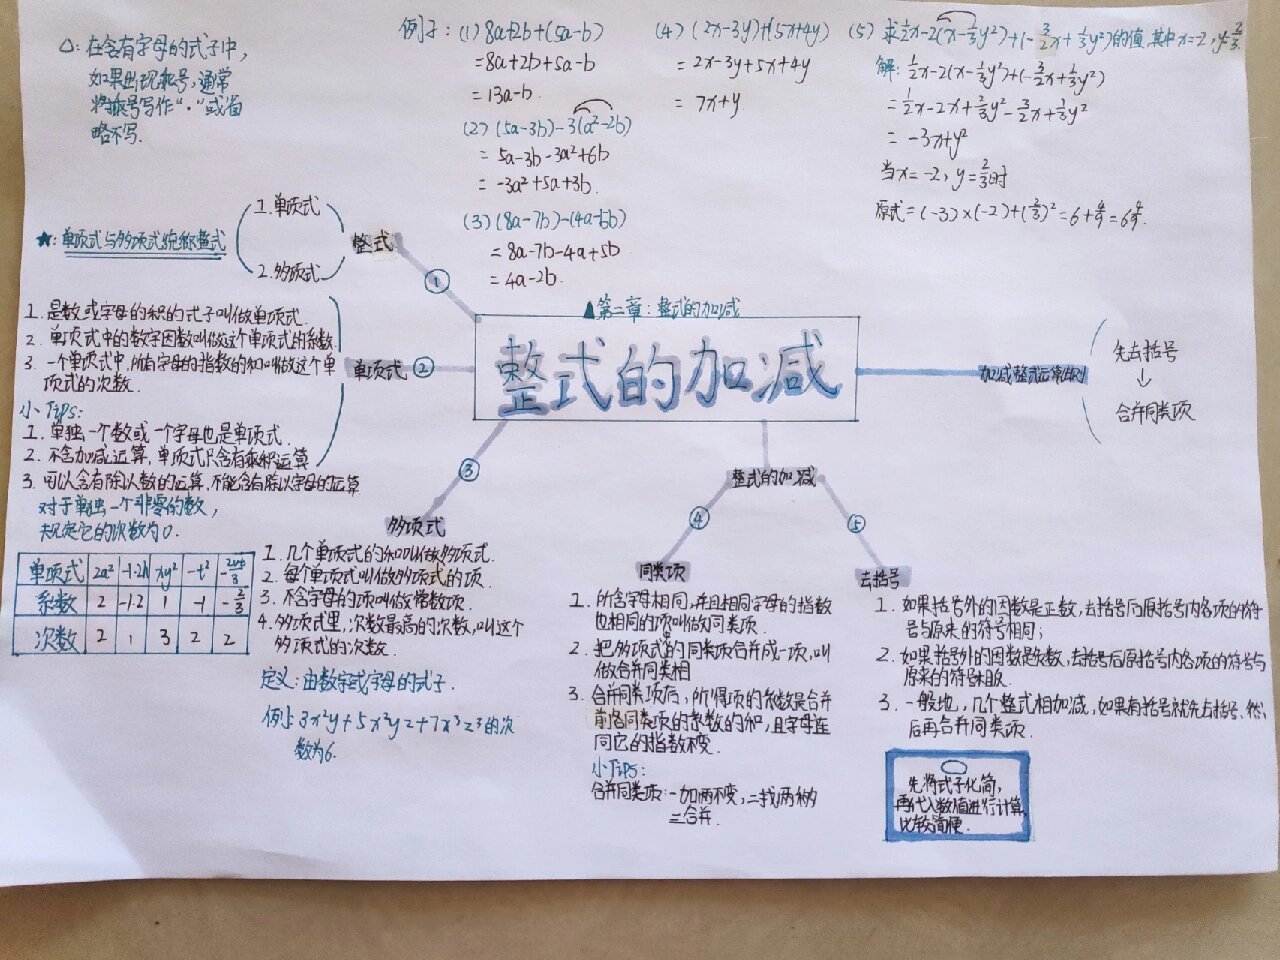 △: 在含有字母的式子中,
如果出现乘号,通常
将乘号写作“·”或省
略不写.
例子: (1) 8a+2b+(5a-b)
=8a+2b+5a-b
=13a-b.
(2) (5a-3b)-3(a²-2b)
= 5a-3b-3a²+6b
= -3a²+5a+3b.
(3) (8a-7b)-(4a-5b)
= 8a-7b-4a+5b
= 4a-2b.
(4) (2x-3y)+(5x+4y)
= 2x-3y+5x+4y
= 7x+y.
(5) 求½x-2(x-⅓y²)+(-3/2x+⅓y²)的值,其中x=-2,y=⅔.
解: ½x-2(x-⅓y²)+(-3/2x+⅓y²)
=½x-2x+⅔y²-3/2x+⅓y²
= -3x+y²
当x=-2, y=⅔时
原式=(-3)×(-2)+(⅔)²=6+4/9=6 4/9.
★: 单项式与多项式统称整式
1.单项式
2.多项式
整式
①
1. 是数或字母的积的式子叫做单项式.
2. 单项式中的数字因数叫做这个单项式的系数.
3. 一个单项式中,所有字母的指数的和叫做这个单
项式的次数.
小Tips:
1. 单独一个数或一个字母也是单项式.
2. 不含加减运算,单项式只含有乘积运算
3. 可以含有除以数的运算,不能含有除以字母的运算
对于单独一个非零的数,
规定它的次数为0.
单项式 ②
▲第二章: 整式的加减
整式的加减
加减整式运算法则
先去括号
↓
合并同类项
③
多项式
单项式 2a² -1.2h xy² -t² -2vt/3
系数 2 -1.2 1 -1 -⅔
次数 2 1 3 2 2
1. 几个单项式的和叫做多项式.
2. 每个单项式叫做多项式的项.
3. 不含字母的项叫做常数项.
4. 多项式里,次数最高的次数,叫这个
多项式的次数.
定义: 由数字或字母的式子.
例: 3x²y+5x²yz+7x³z³的次
数为6.
整式的加减
④
同类项
1. 所含字母相同,并且相同字母的指数
也相同的项叫做同类项.
2. 把多项式的同类项合并成一项,叫
做合并同类相
3. 合并同类项后,所得项的系数是合并
前各同类项的系数的和,且字母连
同它的指数不变.
小Tips:
合并同类项: 一加两不变,二找两构
三合并.
⑤
去括号
1. 如果括号外的因数是正数,去括号后原括号内各项的符
号与原来的符号相同;
2. 如果括号外的因数是负数,去括号后原括号内各项的符号与
原来的符号相反.
3. 一般地,几个整式相加减,如果有括号就先去括号,然
后再合并同类项.
先将式子化简,
再代入数值进行计算,
比较简便.